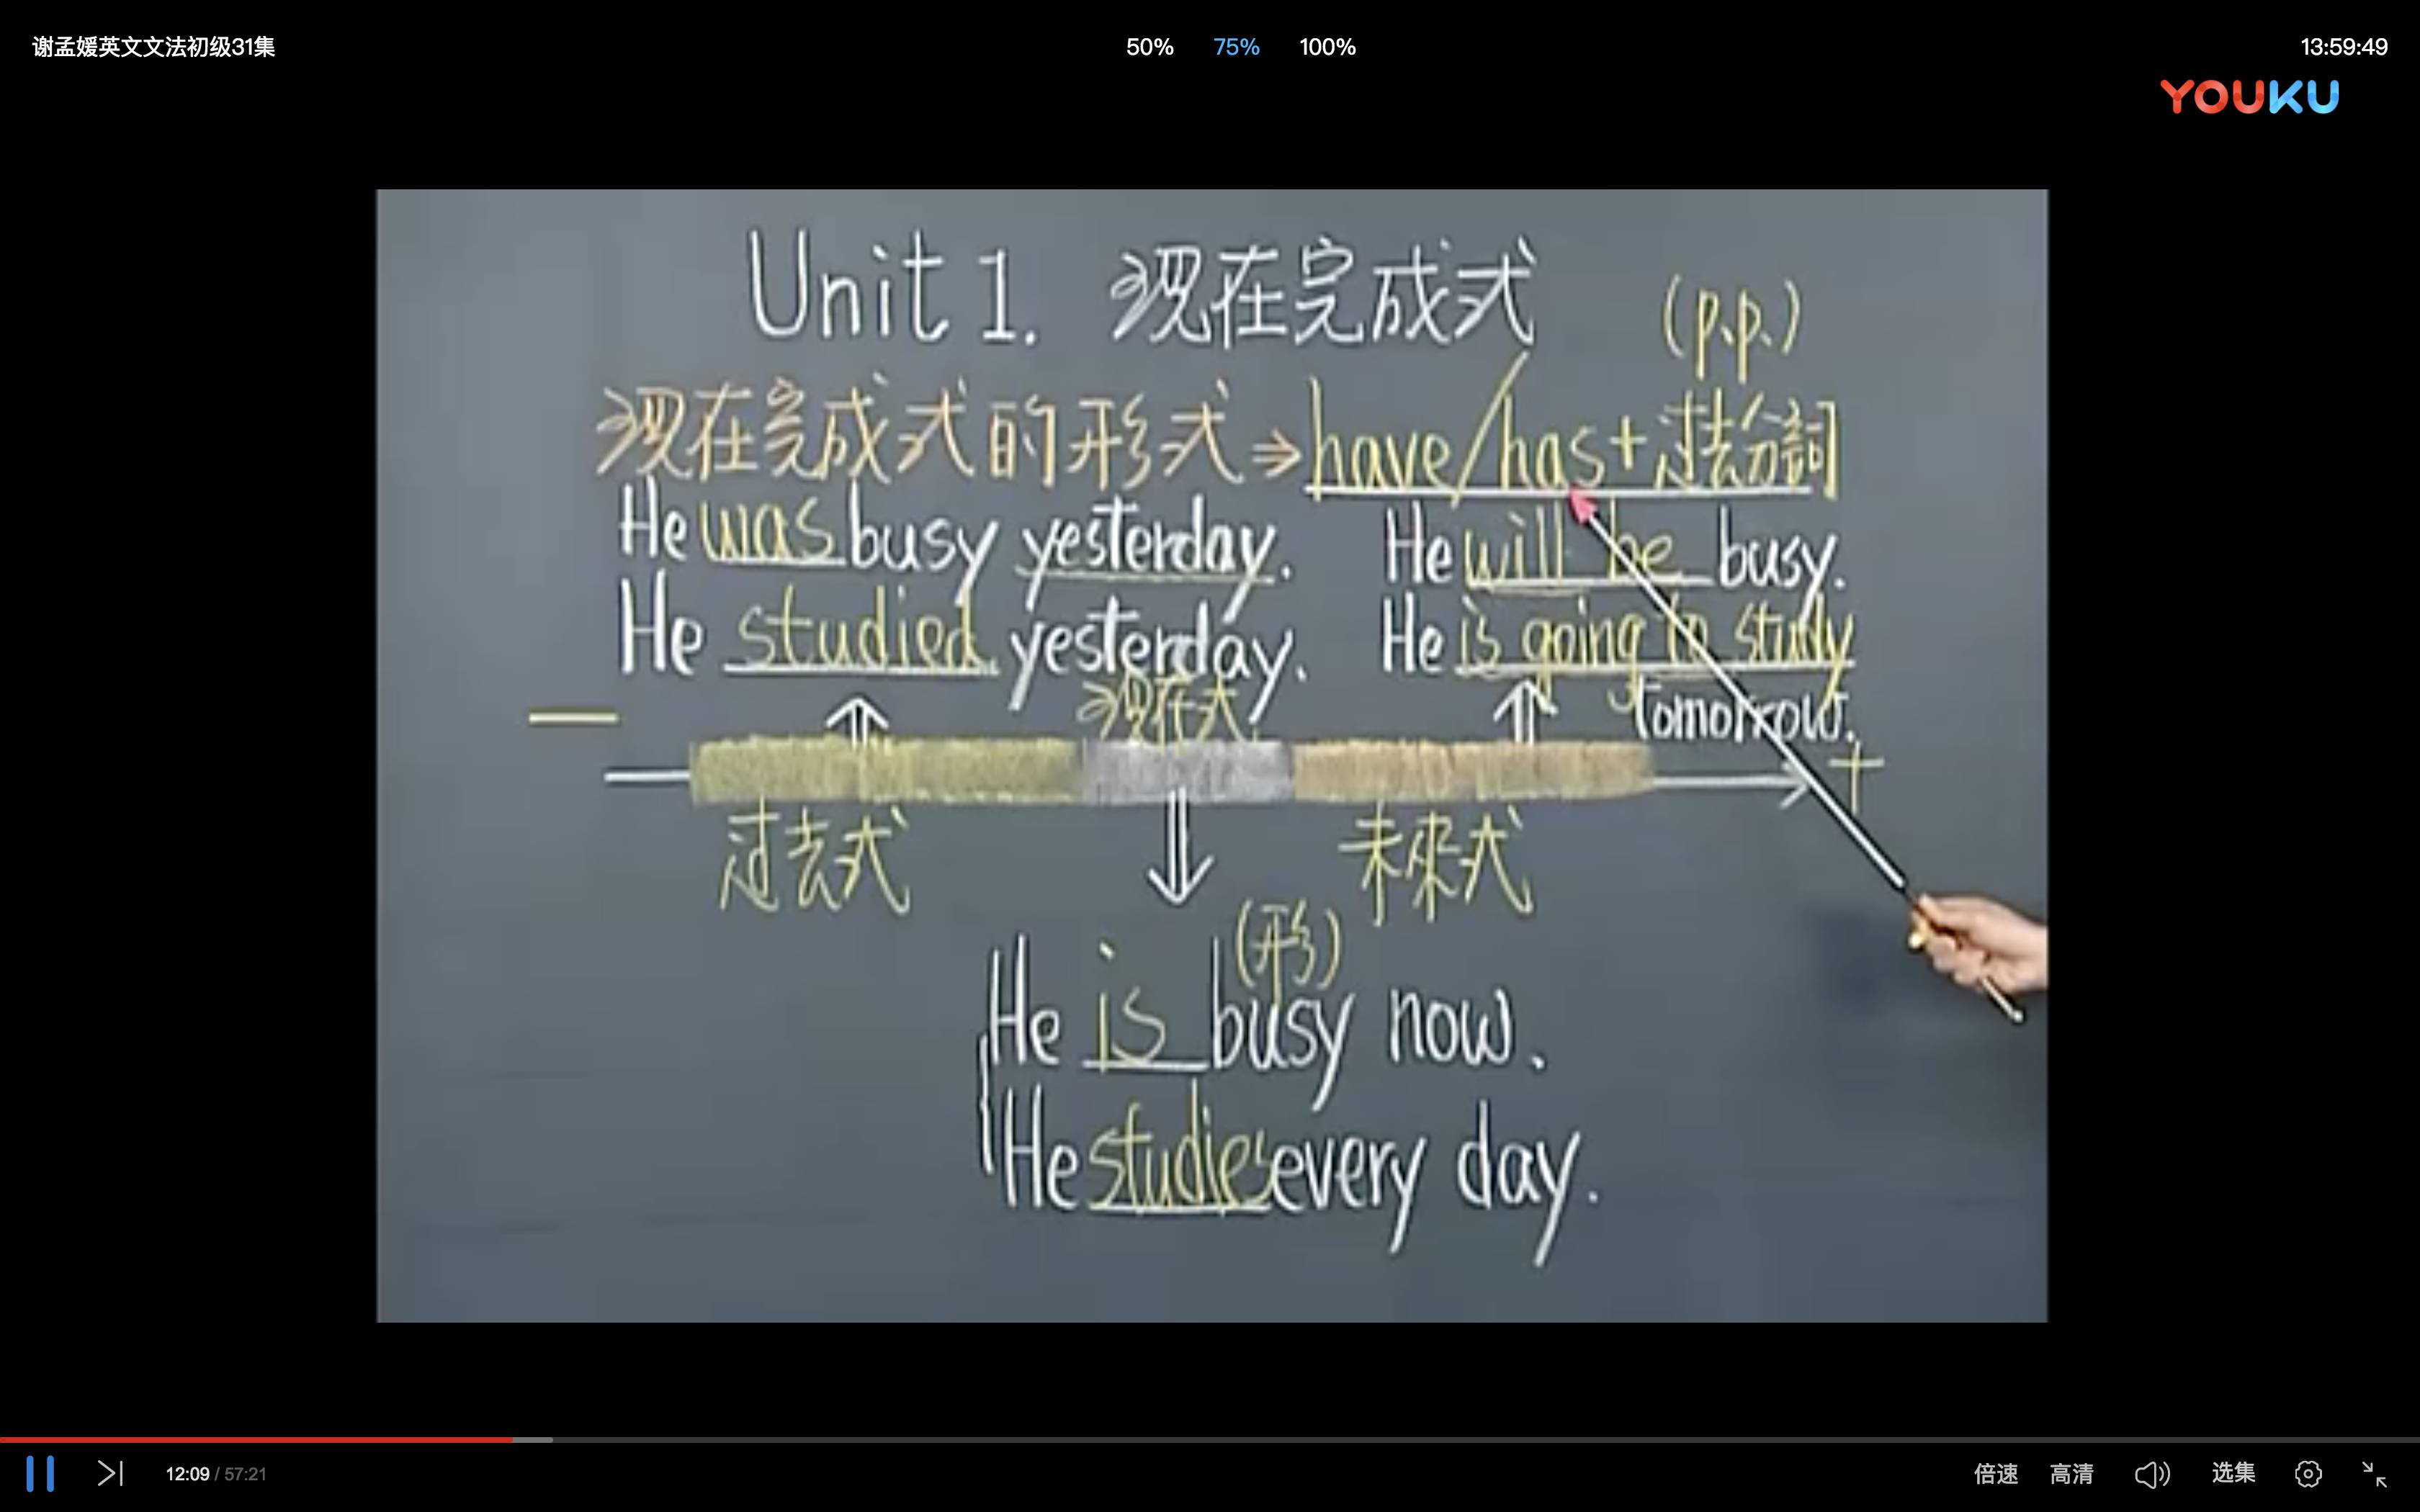 谢孟媛英文文法初级31集
50% 75% 100%
13:59:49
YOUKU
Unit 1. 现在完成式
(p.p.)
现在完成式的形式⇒have/has+过去分詞
He was busy yesterday. He will be busy.
He studied yesterday. He is going to study
tomorrow.
现在式
— +
过去式 未来式
(形)
He is busy now.
He studies every day.
12:09 / 57:21
倍速 高清 选集